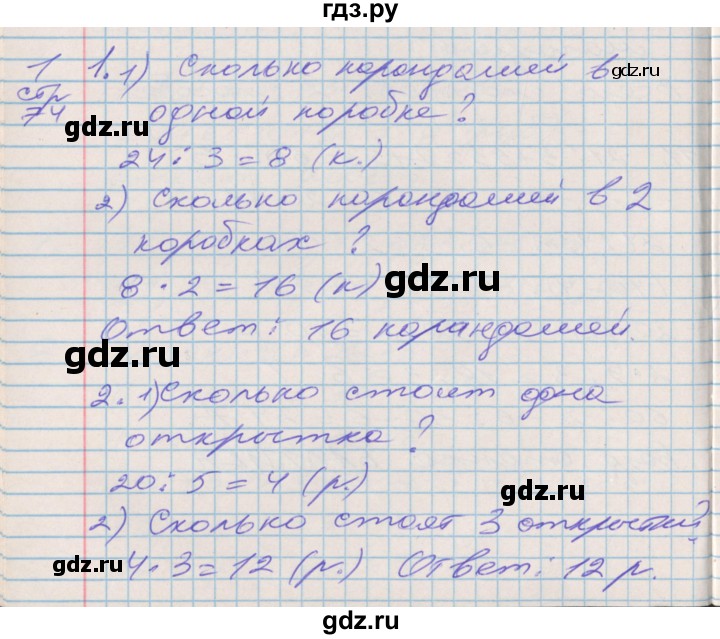 гдз.ру
1 1. 1) Сколько карандашей в
gdz.ru
стр
74 одной коробке?
gdz.ru
24 : 3 = 8 (к.)
2) Сколько карандашей в 2
коробках?
8 · 2 = 16 (к)
gdz.ru
Ответ: 16 карандашей.
gdz.ru
2. 1) Сколько стоит одна
открытка?
20 : 5 = 4 (р.)
gdz.ru
2) Сколько стоят 3 открытки?
4 · 3 = 12 (р.) Ответ: 12 р.
gdz.ru
gdz.ru
гдз.ру